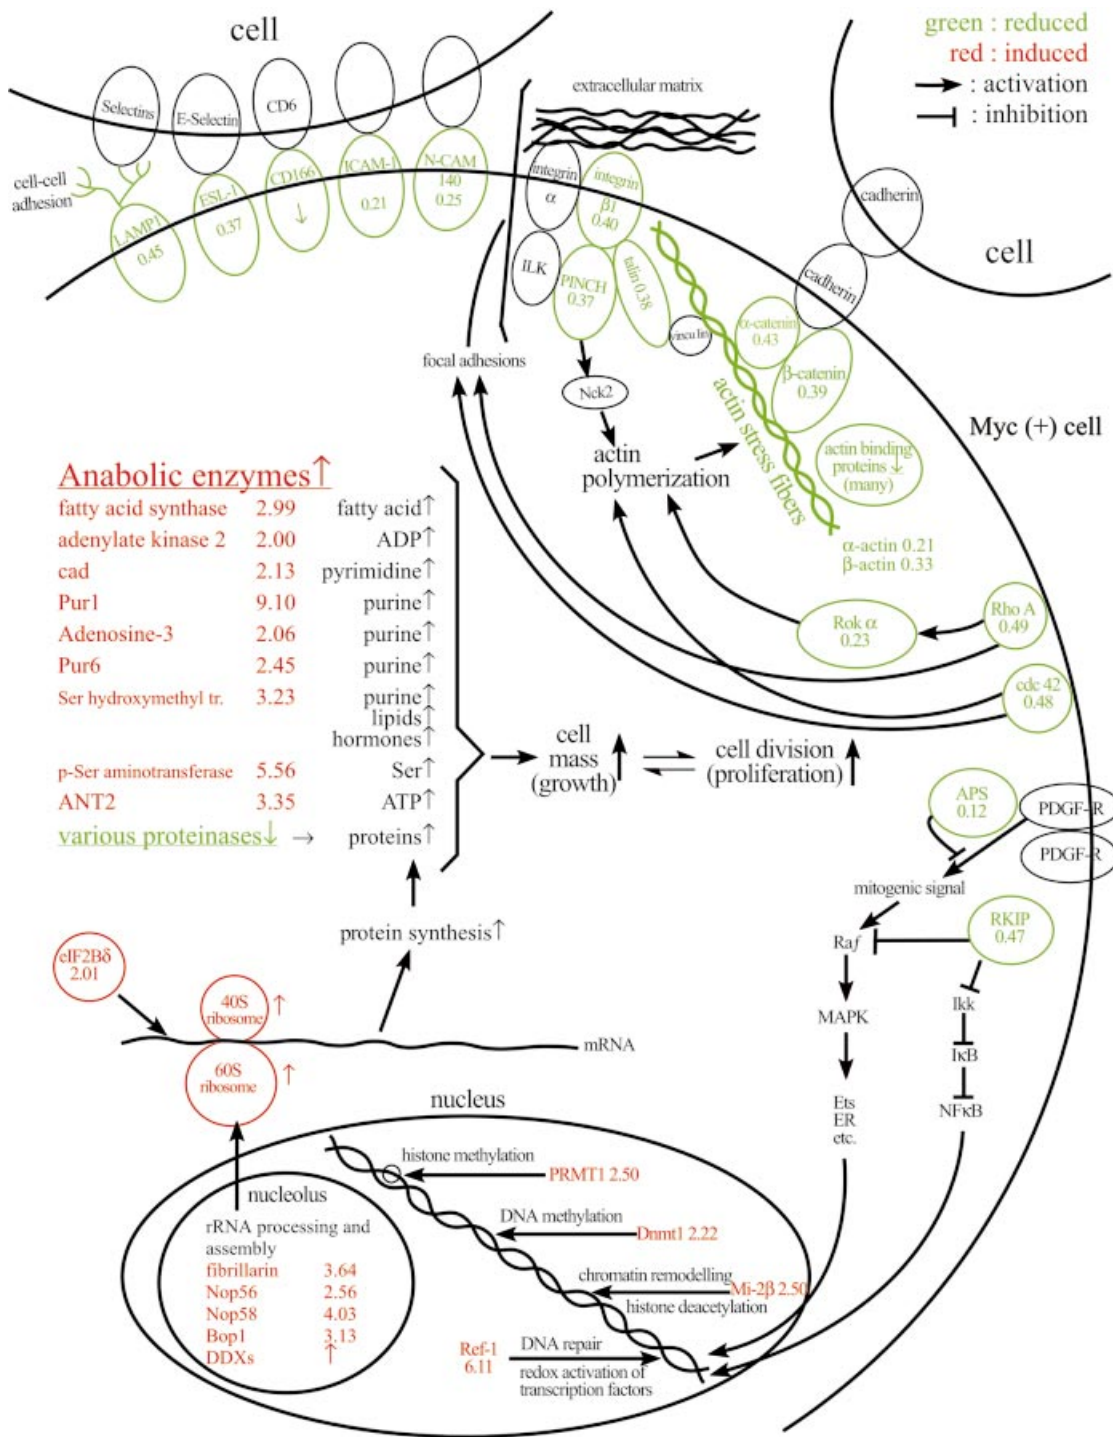 cell
green : reduced
red : induced
: activation
: inhibition
extracellular matrix
Selectins
E-Selectin
CD6
cell-cell
adhesion
LAMP1
0.45
ESL-1
0.37
CD166
↓
ICAM-1
0.21
N-CAM
140
0.25
integrin
α
integrin
β1
0.40
ILK
PINCH
0.37
talin 0.38
vinculin
cadherin
cadherin
cell
α-catenin
0.43
β-catenin
0.39
focal adhesions
Nck2
actin
polymerization
actin stress fibers
actin binding
proteins ↓
(many)
α-actin 0.21
β-actin 0.33
Myc (+) cell
Rok α
0.23
Rho A
0.49
cdc 42
0.48
Anabolic enzymes↑
fatty acid synthase 2.99 fatty acid↑
adenylate kinase 2 2.00 ADP↑
cad 2.13 pyrimidine↑
Pur1 9.10 purine↑
Adenosine-3 2.06 purine↑
Pur6 2.45 purine↑
Ser hydroxymethyl tr. 3.23 purine↑
lipids↑
hormones↑
p-Ser aminotransferase 5.56 Ser↑
ANT2 3.35 ATP↑
various proteinases↓ → proteins↑
cell
mass
(growth)
cell division
(proliferation)
APS
0.12
PDGF-R
PDGF-R
mitogenic signal
RKIP
0.47
Raf
MAPK
Ets
ER
etc.
Ikk
IκB
NFκB
protein synthesis↑
eIF2Bδ
2.01
40S
ribosome
↑
mRNA
60S
ribosome
↑
nucleus
nucleolus
rRNA processing and
assembly
fibrillarin 3.64
Nop56 2.56
Nop58 4.03
Bop1 3.13
DDXs ↑
histone methylation
PRMT1 2.50
DNA methylation
Dnmt1 2.22
chromatin remodelling
Mi-2β 2.50
histone deacetylation
Ref-1
6.11
DNA repair
redox activation of
transcription factors